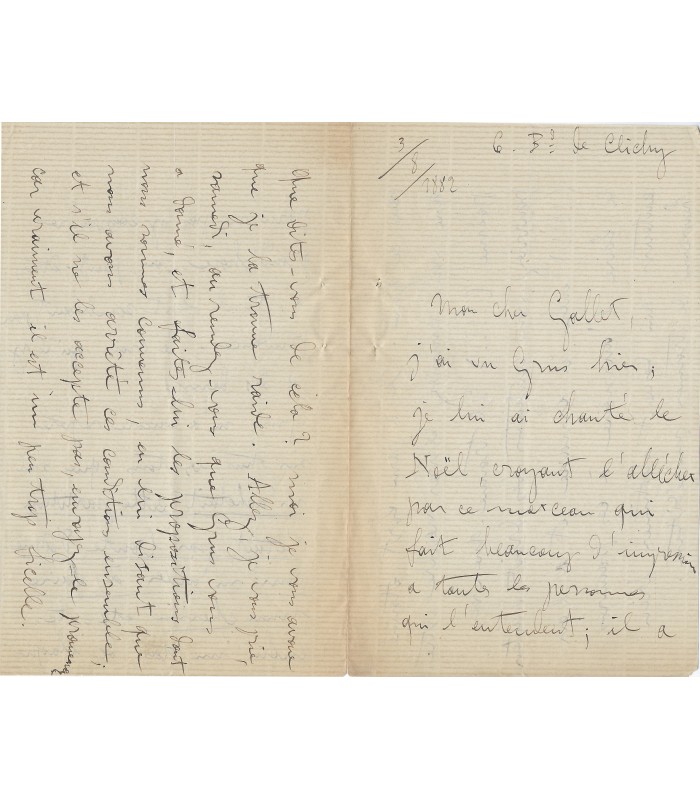 6. Bd de Clichy
3/8/1882
Mon cher Gallet,
j'ai vu Grus hier;
je lui ai chanté le
Noël, croyant l'allécher
par ce morceau qui
fait beaucoup d'impression
a toutes les personnes
qui l'entendent; il a
Que dites-vous de cela? moi je vous avoue
que je la trouve raide. Allez, je vous prie,
samedi, au rendez-vous que Grus vous
a donné, et faites-lui les propositions dont
nous sommes convenus, en lui disant que
nous avons arrêté ces conditions ensemble;
et s'il ne les accepte pas, envoyez-le promener
car vraiment il est un peu trop ficelle.